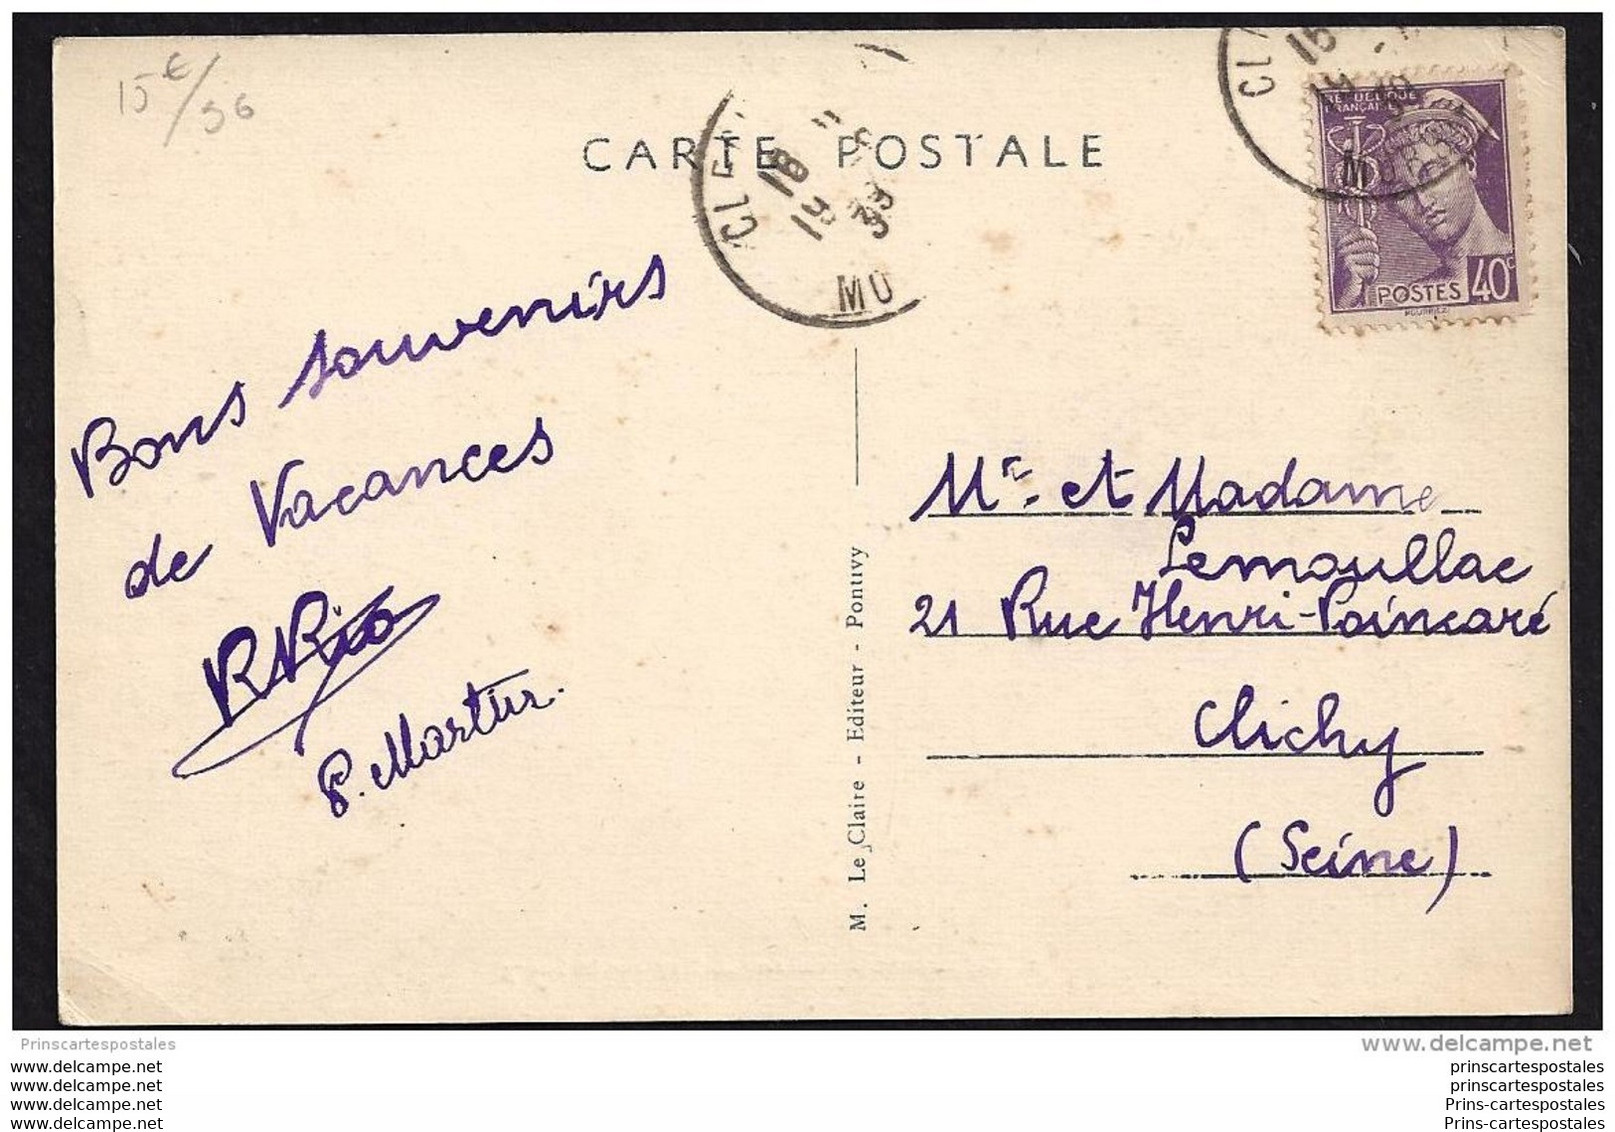 15€/56
CARTE POSTALE
18
19 39
MO
CL
15
MO
RÉPUBLIQUE
FRANÇAISE
POSTES 40c
Bons souvenirs
de Vacances
R Rio
P. Martin.
M. Le Claire - Editeur - Pontivy
Mr. et Madame
Lemoullac
21 Rue Henri-Poincaré
Clichy
(Seine)
Prinscartespostales
www.delcampe.net
www.delcampe.net
www.delcampe.net
www.delcampe.net
www.delcampe.net
prinscartespostales
prinscartespostales
Prins-cartespostales
Prins-cartespostales